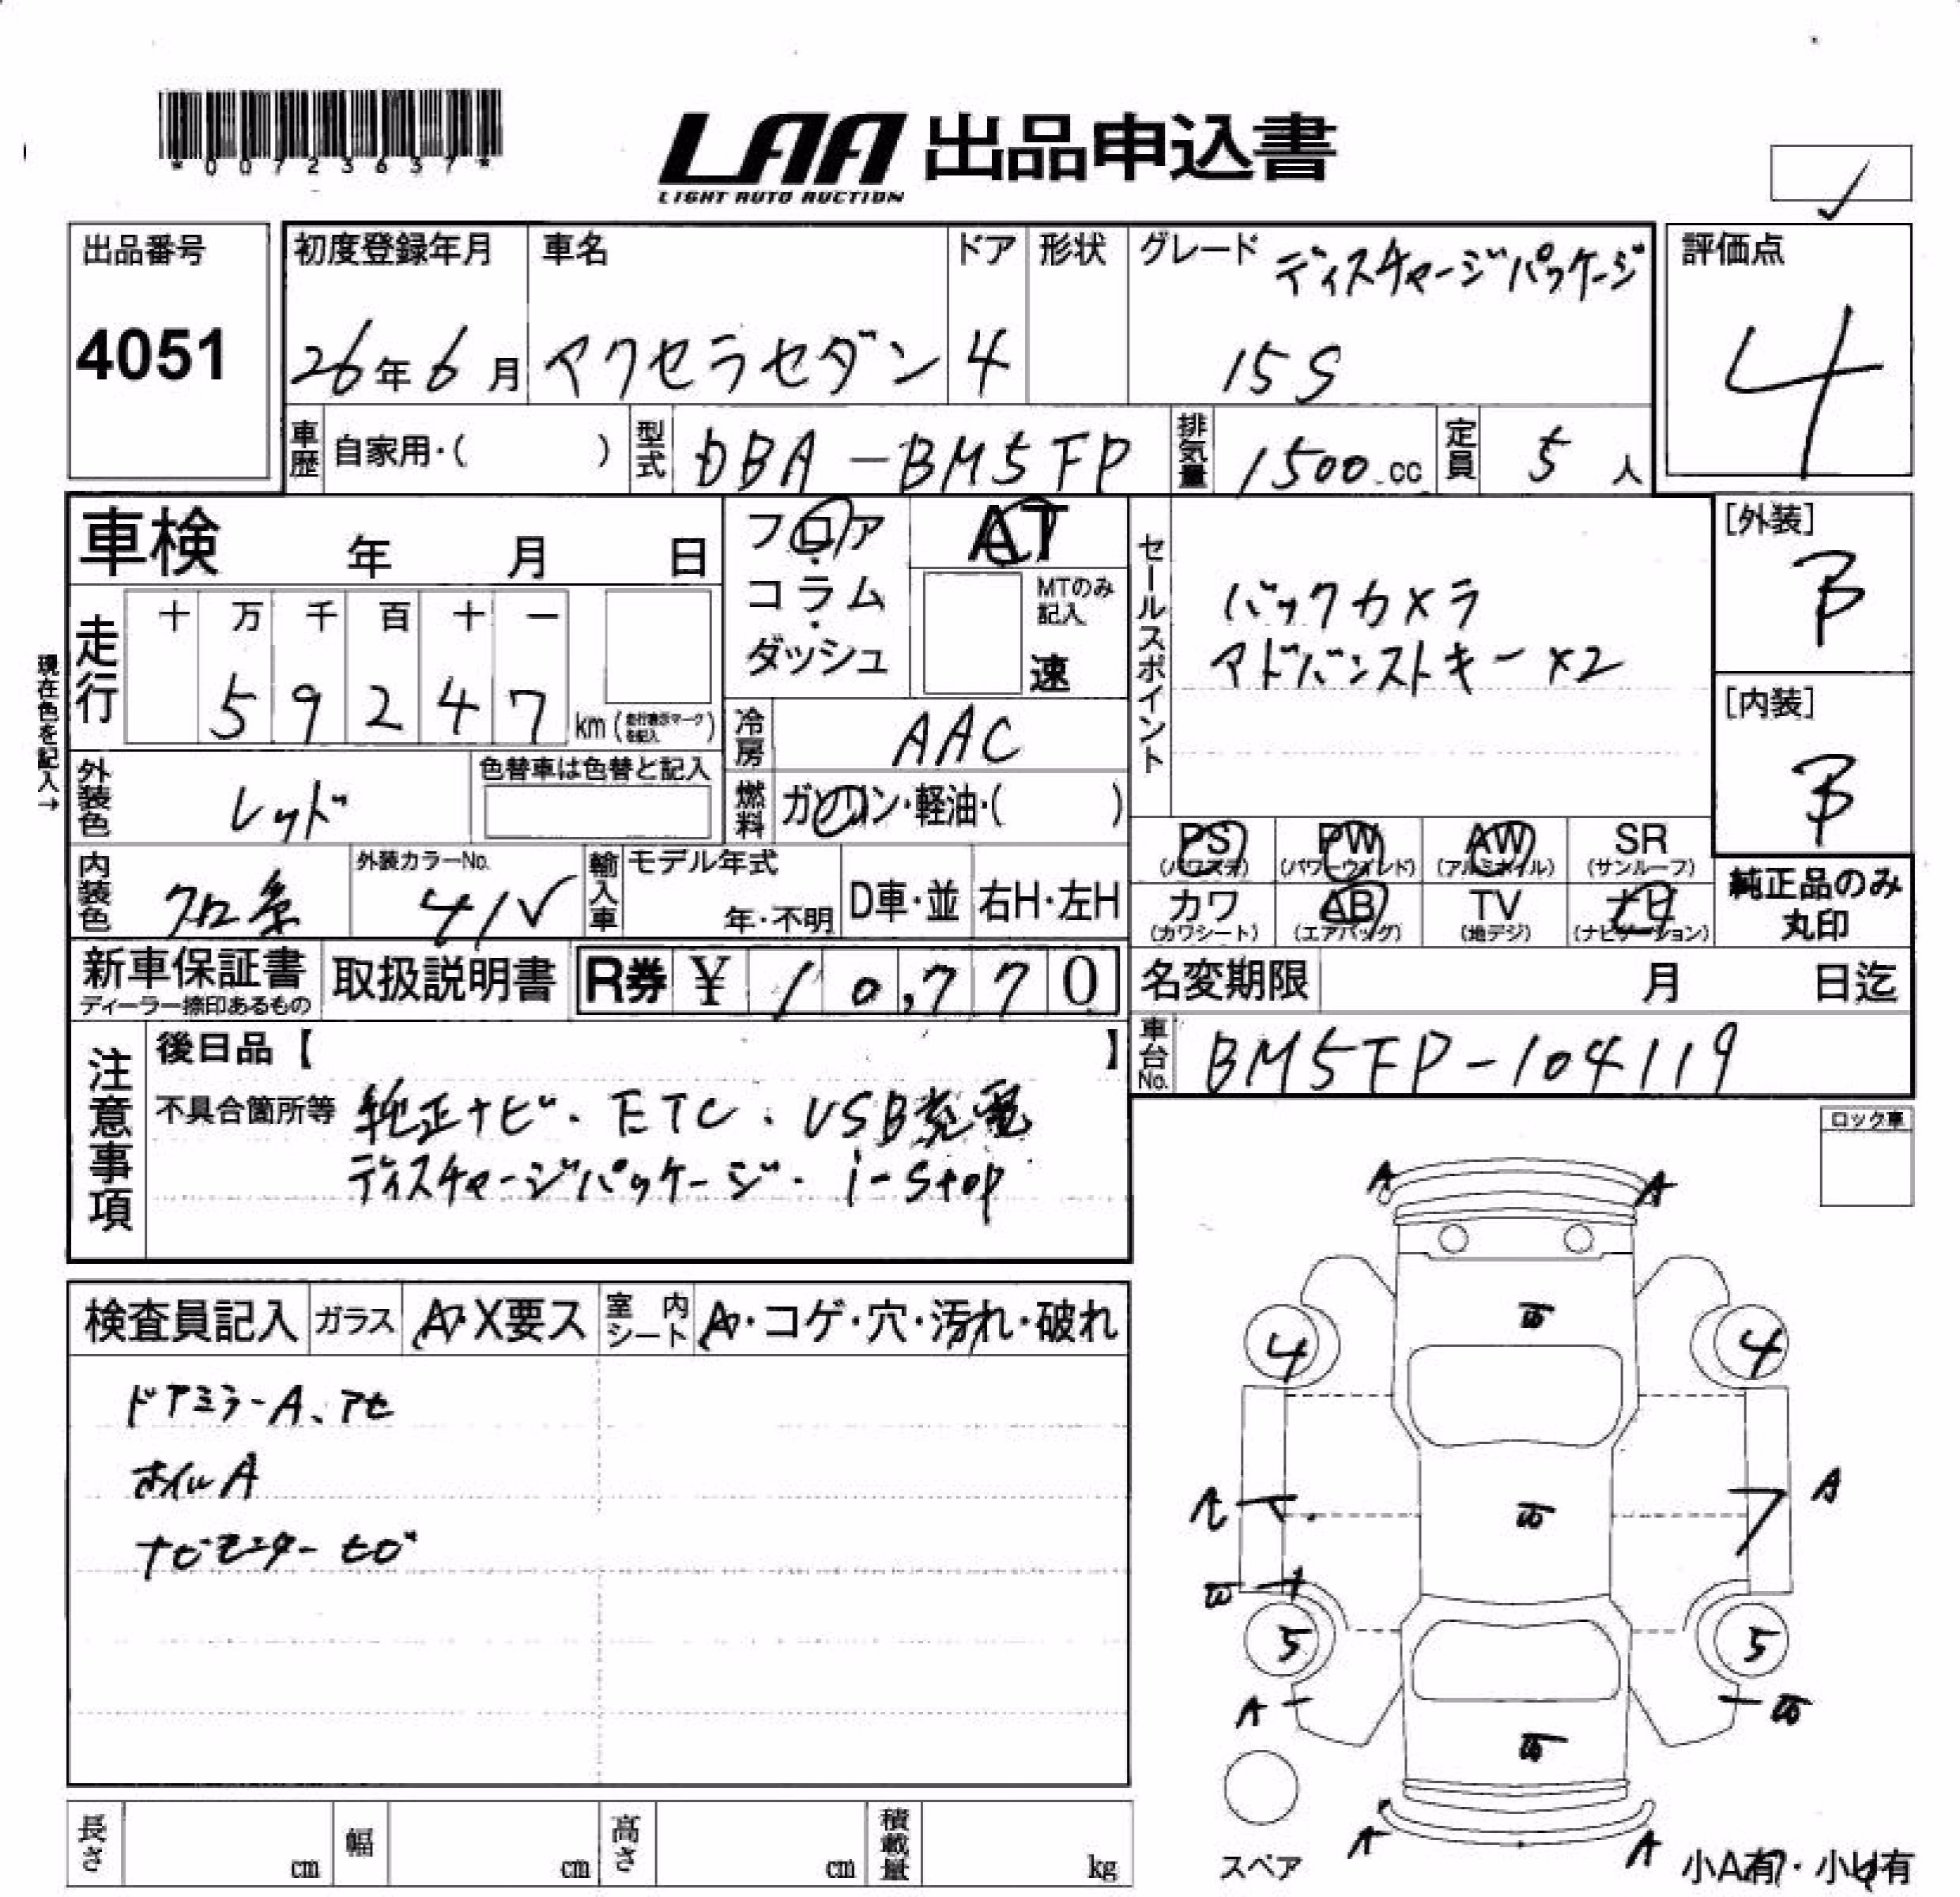 *00723637*
LAA 出品申込書
LIGHT AUTO AUCTION
出品番号
4051
初度登録年月
26年6月
車名
アクセラセダン
ドア
4
形状
グレード ディスチャージパッケージ
15S
評価点
4
車歴 自家用・( )
型式 DBA-BM5FP
排気量 1500.cc
定員 5人
車検 年 月 日
フロア
コラム
ダッシュ
AT
MTのみ
記入
速
セールスポイント
バックカメラ
アドバンストキー×2
[外装]
B
[内装]
B
現在色を記入→
走行
十 万 千 百 十 一
5 9 2 4 7 km (走行表示マークを記入)
冷房 AAC
外装色 レッド
色替車は色替と記入
燃料 ガソリン・軽油・( )
PS (パワステ) PW (パワーウィンド) AW (アルミホイル) SR (サンルーフ)
カワ (カワシート) AB (エアバッグ) TV (地デジ) ナビ (ナビゲーション)
純正品のみ
丸印
内装色 クロ系
外装カラーNo.
41V
輸入車
モデル年式
年・不明
D車・並
右H・左H
新車保証書
ディーラー捺印あるもの
取扱説明書
R券 ¥ 10,770
名変期限 月 日迄
車台No. BM5FP-104119
注意事項
後日品【 】
不具合箇所等 純正ナビ・ETC・USB充電
ディスチャージパッケージ・i-stop
ロック車
検査員記入
ガラス A・X要ス
室内シート
・コゲ・穴・汚れ・破れ
ドアミラーA、アセ
ホイルA
ナビモニターヒビ
A A
4 4
A
5 5
A
A A
スペア
小A有・小U有
長さ cm
幅 cm
高さ cm
積載量 kg